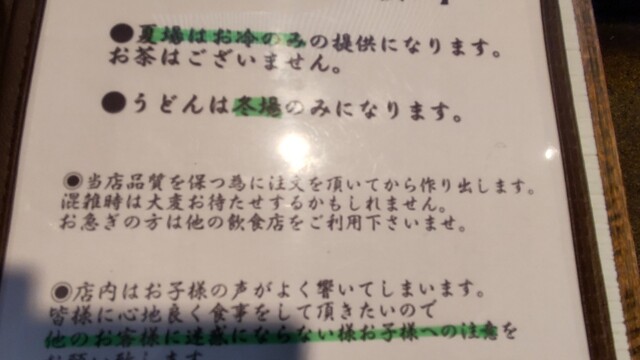 ●夏場はお冷のみの提供になります。
お茶はございません。
●うどんは冬場のみになります。
◉当店品質を保つ為に注文を頂いてから作り出します。
混雑時は大変お待たせするかもしれません。
お急ぎの方は他の飲食店をご利用下さいませ。
◉店内はお子様の声がよく響いてしまいます。
皆様に心地良く食事をして頂きたいので
他のお客様に迷惑にならない様お子様への注意を
お願い致します